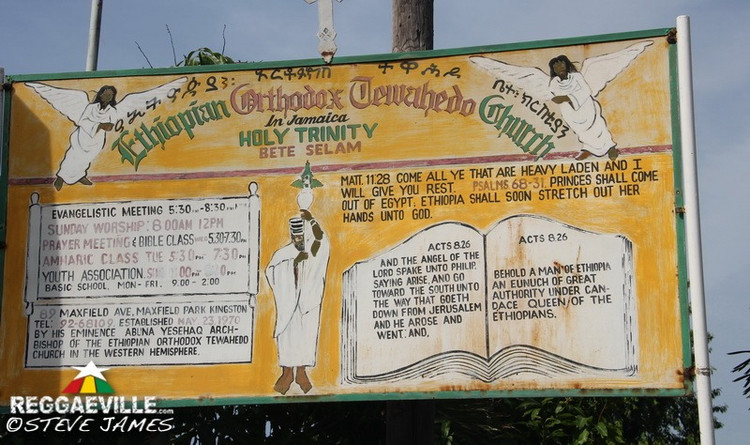 Ethiopian Orthodox Tewahedo Church
In Jamaica
HOLY TRINITY
BETE SELAM
EVANGELISTIC MEETING 5:30 PM-8:30 PM
SUNDAY WORSHIP: 8:00AM 12PM
PRAYER MEETING & BIBLE CLASS WED 5:30-7:30
AMHARIC CLASS TUE 5:30 PM 7:30
YOUTH ASSOCIATION. PM
BASIC SCHOOL, MON- FRI. 9:00 - 2:00
89 MAXFIELD AVE, MAXFIELD PARK KINGSTON
TEL: 92-68109. ESTABLISHED MAY. 23, 1970
BY HIS EMINENCE ABUNA YESEHAQ ARCH-
BISHOP OF THE ETHIOPIAN ORTHODOX TEWAHEDO
CHURCH IN THE WESTERN HEMISPHERE.
MATT. 11:28 COME ALL YE THAT ARE HEAVY LADEN AND I
WILL GIVE YOU REST. PSALMS 68-31. PRINCES SHALL COME
OUT OF EGYPT, ETHIOPIA SHALL SOON STRETCH OUT HER
HANDS UNTO GOD.
ACTS 8:26
AND THE ANGEL OF THE
LORD SPAKE UNTO PHILIP,
SAYING ARISE, AND GO
TOWARD THE SOUTH UNTO
THE WAY THAT GOETH
DOWN FROM JERUSALEM
AND HE AROSE AND
WENT: AND,
ACTS 8:26
BEHOLD A MAN OF ETHIOPIA
AN EUNUCH OF GREAT
AUTHORITY UNDER CAN-
DACE QUEEN OF THE
ETHIOPIANS.
REGGAEVILLE.com
©STEVE JAMES